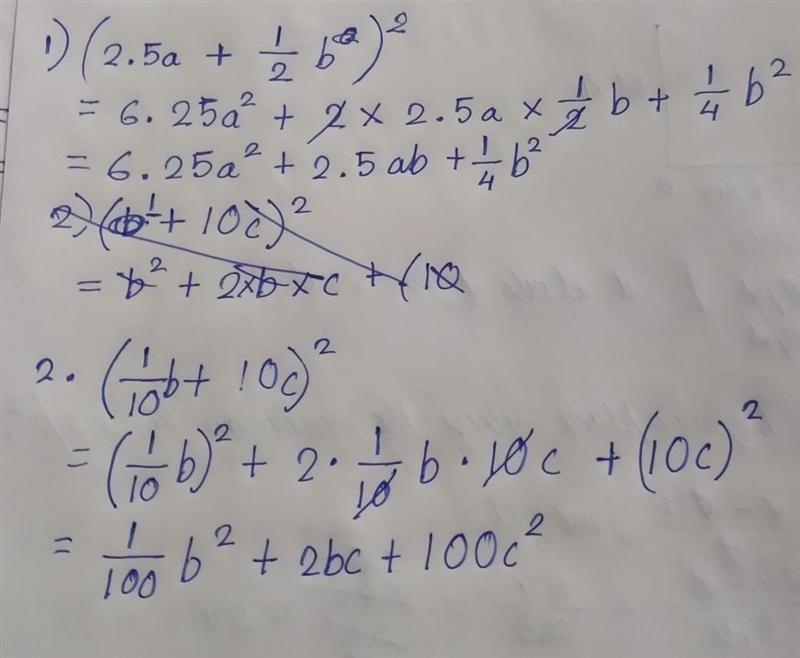 1) (2.5a + 1/2 b)²
= 6.25a² + 2 × 2.5a × 1/2 b + 1/4 b²
= 6.25a² + 2.5ab + 1/4 b²
2) ( + 10c)²
= b² + 2×b×c + (10
2. (1/10 b + 10c)²
= (1/10 b)² + 2 · 1/10 b · 10c + (10c)²
= 1/100 b² + 2bc + 100c²